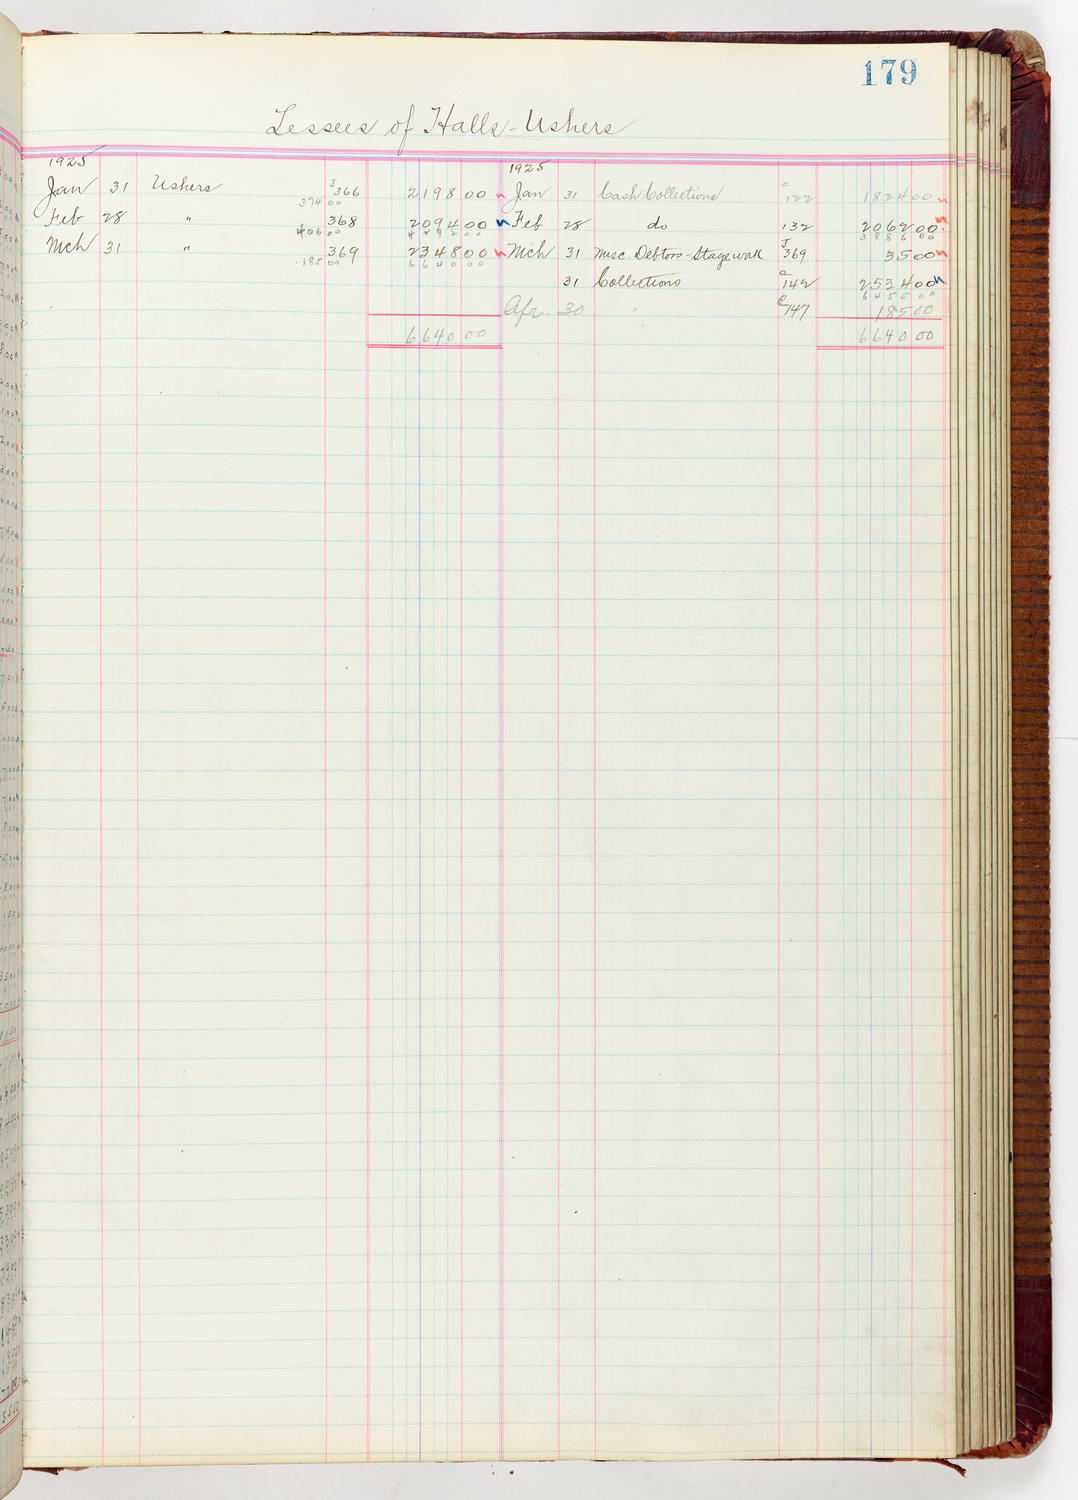 179
Lessees of Halls - Ushers
1925
Jan 31 Ushers J366 2198 00
374 00
Feb 28 " 368 2094 00
406 00 4292 00
Mch 31 " 369 2348 00
185 00 6640 00
6640 00
1925
Jan 31 Cash Collections C122 1824 00
Feb 28 do 132 2062 00
3886 00
Mch 31 Misc. Debtors - Stage work J369 35 00
31 Collections C142 2534 00
6455 00
Apr. 30 " C147 185 00
6640 00